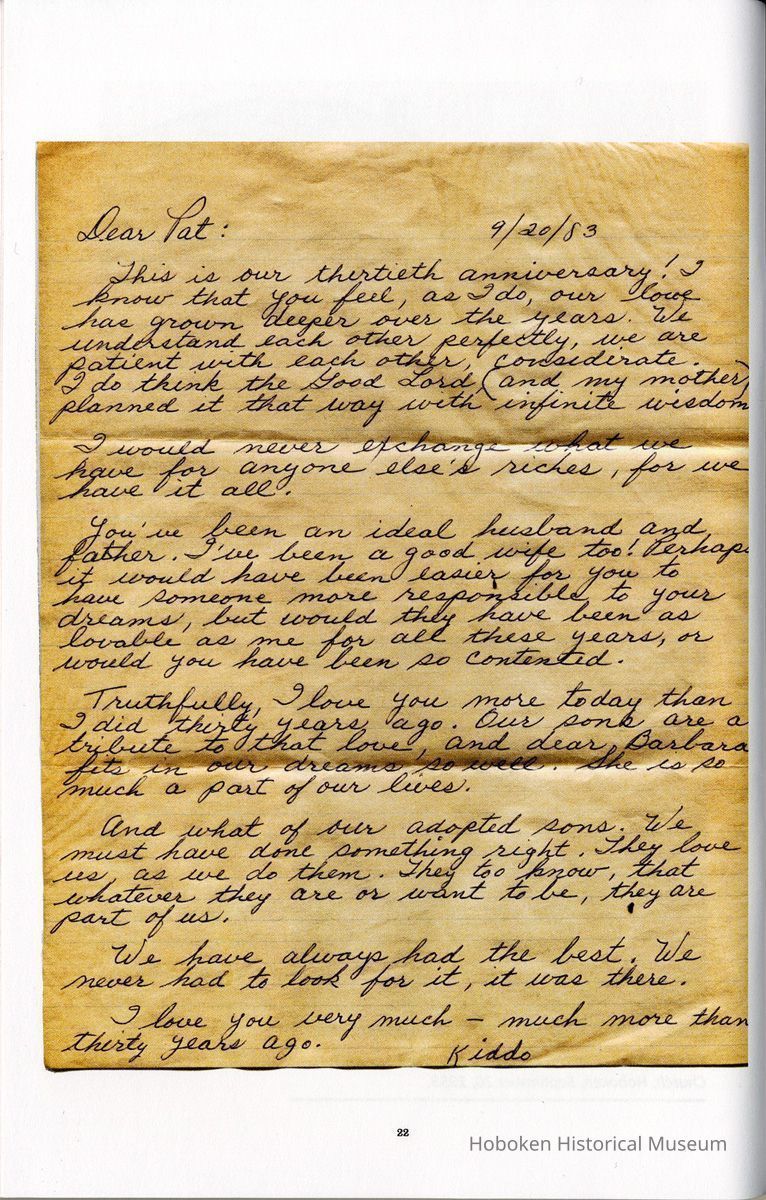 Dear Pat: 9/20/83
This is our thertieth anniversary! I
know that you feel, as I do, our love
has grown deeper over the years. We
understand each other perfectly, we are
patient with each other, considerate.
I do think the Good Lord (and my mother)
planned it that way with infinite wisdom
I would never exchange what we
have for anyone else's riches, for we
have it all.
You've been an ideal husband and
father. I've been a good wife too! Perhaps
it would have been easier for you to
have someone more responsible to your
dreams, but would they have been as
lovable as me for all these years, or
would you have been so contented.
Truthfully, I love you more today than
I did thirty years ago. Our sons are a
tribute to that love, and dear Barbara
fits in our dreams so well. She is so
much a part of our lives.
And what of our adopted sons. We
must have done something right. They love
us, as we do them. They too know, that
whatever they are or want to be, they are
part of us.
We have always had the best. We
never had to look for it, it was there.
I love you very much - much more than
thirty years ago.
Kiddo
22
Hoboken Historical Museum